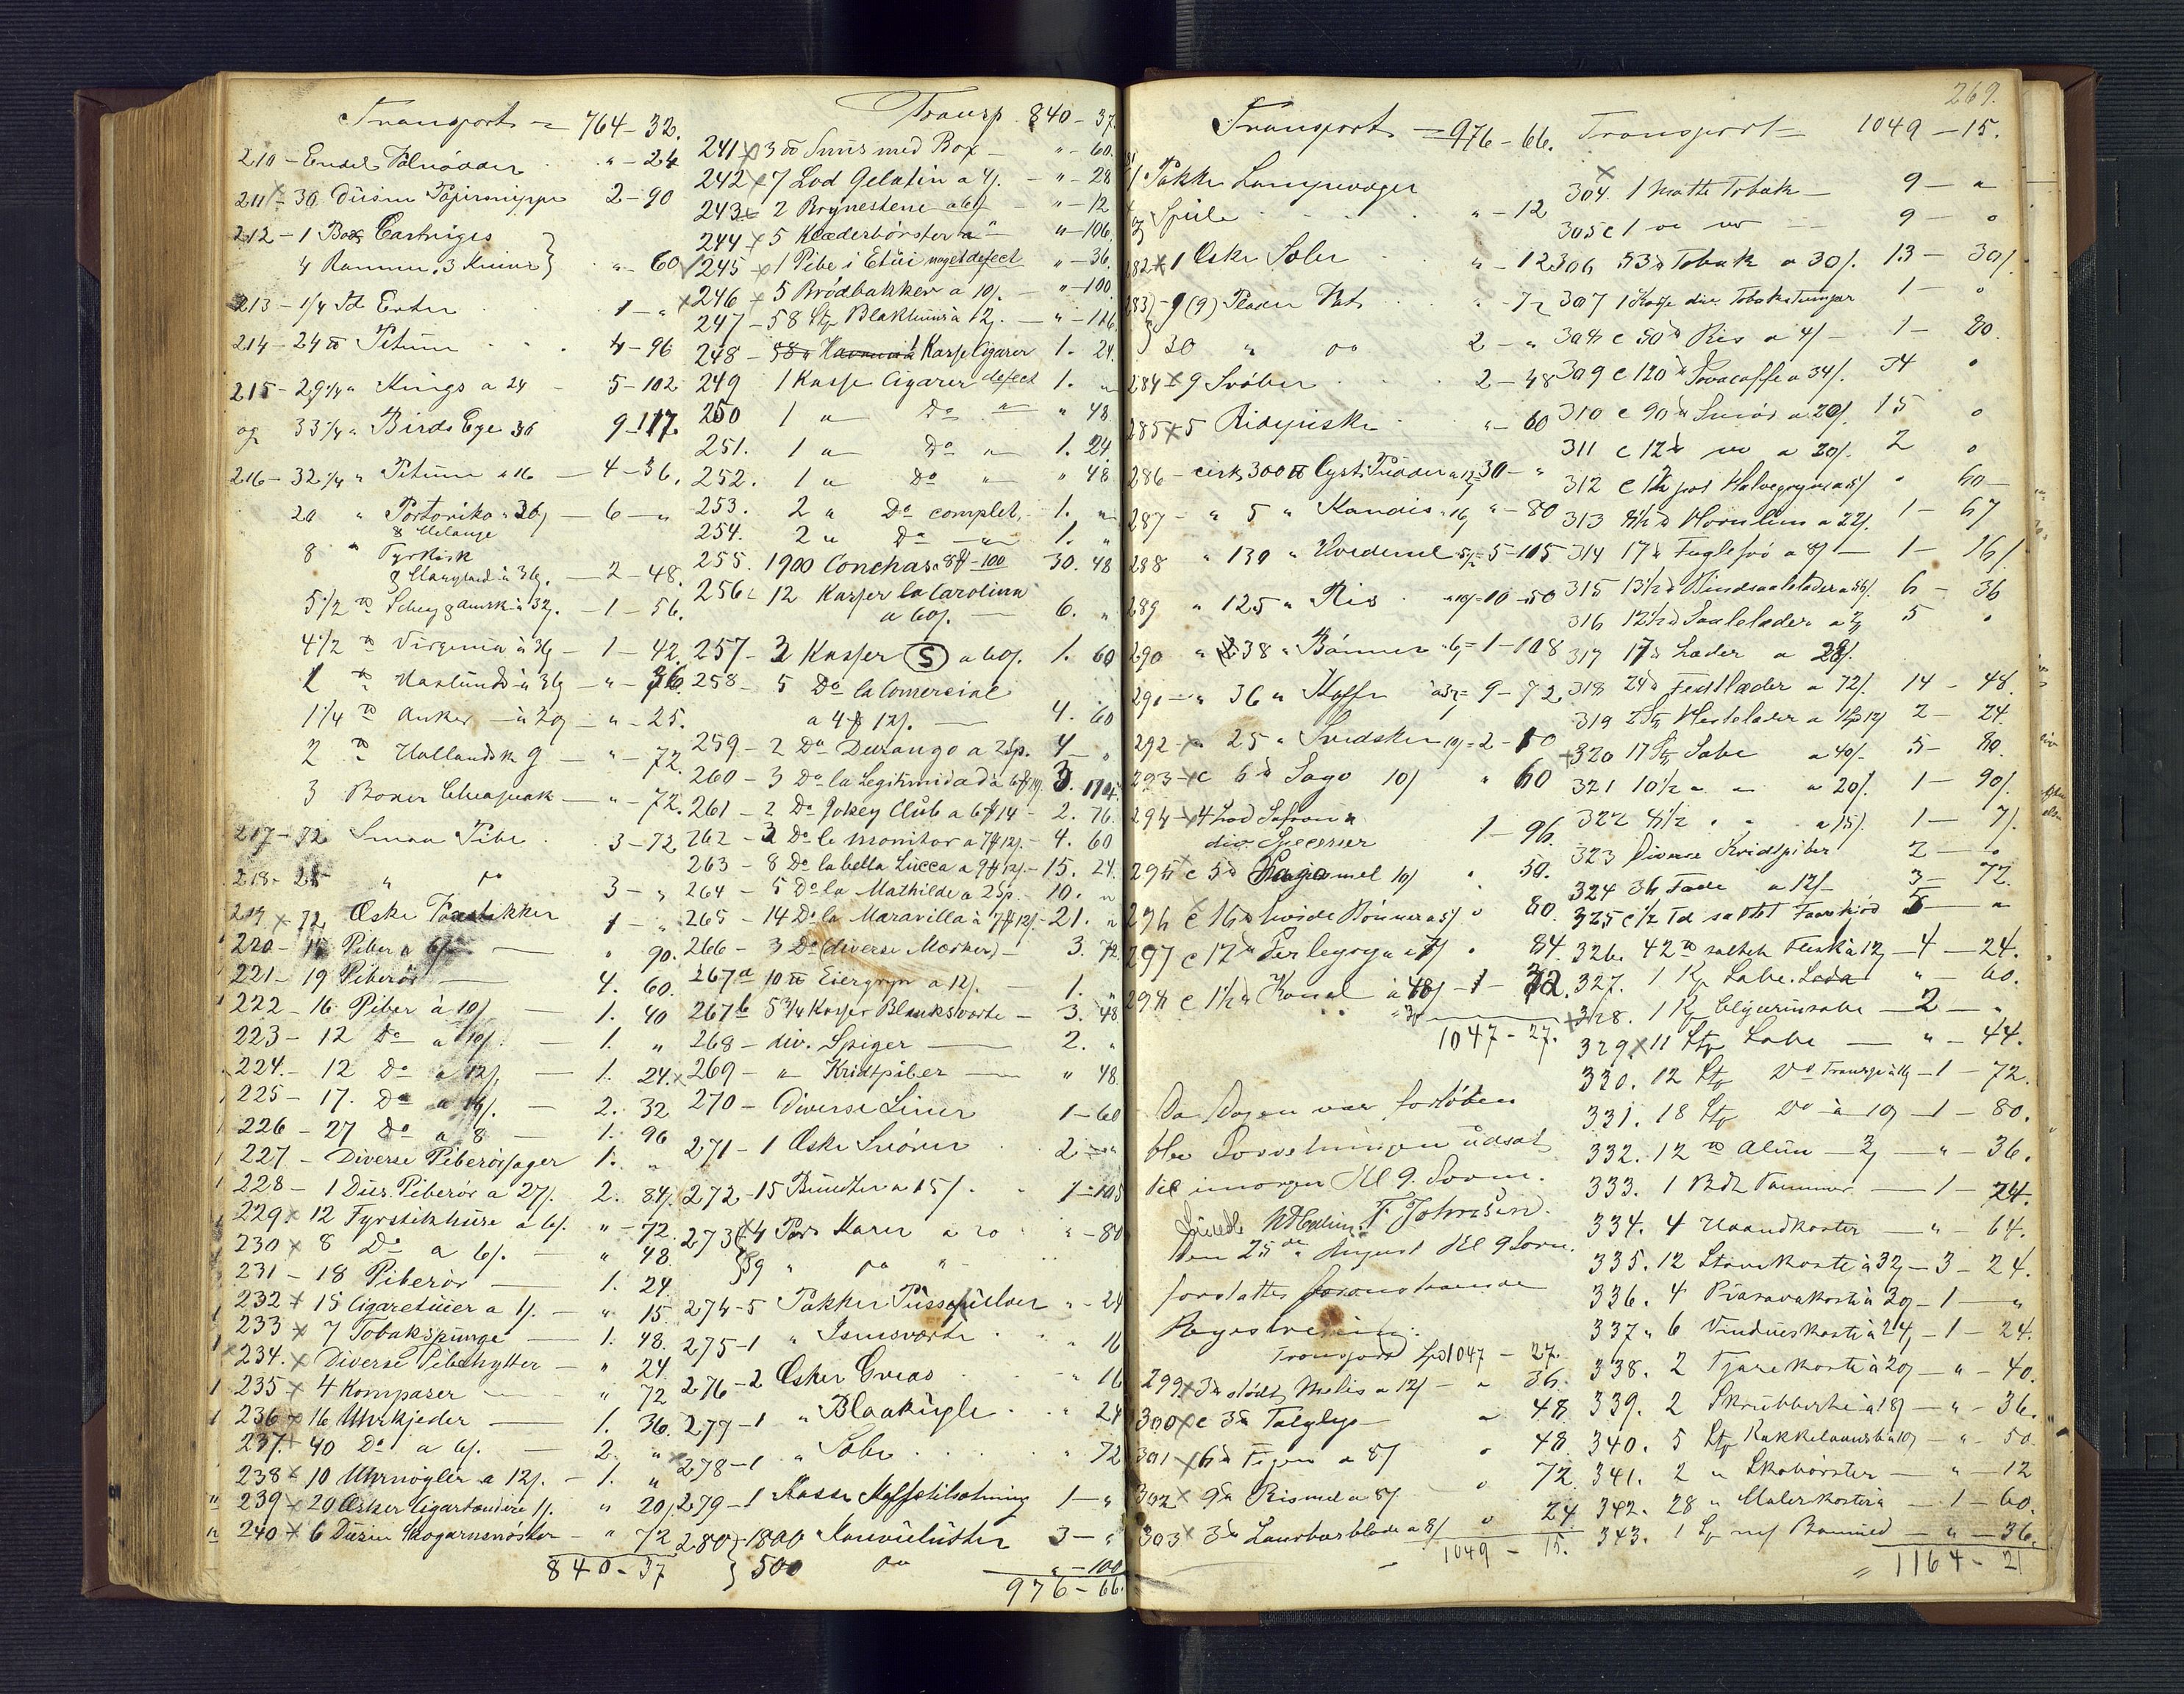 Transport = 764-32.
210 - Endel
211 - 30 Dusin Papirsnipper 2-90
212 - 1 Box Cartriges
4 Rammer, 3 Knive } " - 60
213 - 1/4 Td Erter 1 - "
214 - 24 ℔ Petum 4-96
215 - 29 1/4 " Kings a 24 - 5-102
og 33 1/4 " Birds Eye 36 9-117.
216 - 32 1/4 " Petum a 16 - 4-36.
20 " Portoriko a 36 - 6 - "
& Melange
8 " Tyrkisk
& Maryland à 36. - 2-48.
5 1/2 ℔ dansk à 32. - 1-56.
4 1/2 ℔ Virginia à 36 - 1-42.
1 ℔ à 36 - " - 36.
1 1/4 ℔ Anker - à 20 - " - 25.
2 ℔ Hollandsk - " - 72.
3 Boxer - " - 72.
217 - 72 Smaa Pibe 3-72
218 - " 3 - "
219 x 72 Æske Fyrstikker 1 - "
220 - 15 Piber a 6/. " 90.
221 - 19 Piberør 4. 60.
222 - 16 Piber à 10/ - 1. 40
223 - 12 Do a 10/. - 1. "
224 - 12 Do a 12/. - 1. 24.
225 - 17. Do a - 2. 32
226 - 27 Do a 8 - 1. 96
227 - Diverse Piberørsager 1. "
228 - 1 Dus. Piberør a 27/. 2. 84.
229 x 12 Fyrstikhuse a 6/. " - 72.
230 x 8 Do a 6/. - " 48.
231 - 18 Piberør - 1. 24.
232 x 15 Cigaretuier a 1/. - " 15.
233 x 7 Tobakspunge - 1. 48.
234. x Diverse Pibehytter - " 24.
235 x 4 Kompasser " 72
236 x 16 Uhrkjeder - 1. 36.
237 x 40 Do a 6/. - 2. "
238 x 10 Uhrnøgler a 12/. - 1. "
239 x 20 Æsker Cigartændere 1/. " 20/.
240 x 6 Dusin - " 72
840-37
Transp. 840-37.
241 x 3 ℔ Snus med Box - " - 60.
242 x 7 Lod Gelatin a 4/. - " - 28
243 x 2 Brynestene a 6/ - " - 12
244 x 5 Klædesbørster a " - " - 106.
245 x 1 Pibe i Etui noget defect " - 36.
246 x 5 Brødbakker a 10/. - " - 100.
247 - 58 Stk Blækhuus à 2/. - " - 116.
248 - 1 Kasse Cigarer 1. 24.
249 1 Kasse Cigarer defect 1. "
250 1 " Do " " 48.
251. 1 " Do " 1. 24.
252. 1 " Do " " 48
253. 2 " Do complet. 1. "
254. 2 " Do " 1. "
255. 1900 Conchas a 8 - 100 30. 48
256. 12 Kasser la Carolina
a 60/. - 6. "
257 - 2 Kasser (S) a 60/. 1. 60
258 - 5 Do la Comercial
a 4 # 12/. - 4. 60
259 - 2 Do Durango a 2 Sp. 4 - "
260 - 3 Do la Legitimidad a 3. 114.
261 - 2 Do Jokey Club a 6 # 14 - 2. 76.
262 - 3 Do la Monitor a 7 # 12/. - 4. 60
263 - 8 Do la bella Lucca a 9 # 12/. - 15. 24.
264 - 5 Do la Mathilde a 2 Sp. - 10. "
265 - 14 Do la Maravilla à 7 # 12/. - 21. "
266 - 3 Do (diverse Mærker) - 3. 72.
267a 10 ℔ Eiergryn a 12/. - 1. "
267b 5 3/4 Kasser Blanksværte - 3. 48
268 - div. Spiger - 2. "
269 - " Kridtpiber - " 48.
270 - Diverse Liner 1-60
271 - 1 Æske Snører 2 - "
272 - 15 Bundter a 15/. 1-105
273 { 4 Par Karer a 20 " - 80
} 59 " "
274 - 5 Pakker Pudsepulver " - 24
275 - 1 " " 16
276 - 2 Æsker " 16
277 - 1 " Blaakugle " 24
278 - 1 " Sæbe " 72
279 - 1 Kasse Kaffetilsetning 1 - "
280 } - 1800 3 - "
} 500 " - 100
976-66.
269.
Transport = 976-66.
1 Pakke Lampevæger
Speile " - 12
282 x 1 Æske Sæbe " - 12
283 } - 9 (9) " - 72
} 30 " 2 - "
284 x 9 2-48
285 x 5 Ridepiske " - 60
286 - cirk. 300 ℔ 30 - "
287 - " 5 " Kandis " 16 " - 80
288 " 130 " Hvedemel 5-115
289 " 125 " Ris 10-50
290 " 238 " Bønner 6 = 1-108
291 - " 36 " Kaffe = 9-72
292 - x " 25 " Svedsker 10 = 2-10
293 - x c 6 ℔ Sago 10/ " 60
294 - x 4 Lod Safran &
div. Specesser 1-96.
295 c 5 ℔ 10/ " 50.
296 c 16 ℔ hvide Bønner a 5/ " 80.
297 c 12 ℔ Perlegryn a 7/ " 84.
298 c 1 1/2 ℔ Kanel à 48/ - 1-
1047-27.
Da Dagen var forløben
blev Forretningen udsat
til imorgen Kl 9. Form.
F Johnsen.
Den 25de August Kl 9 Form.
fortsattes foranstaaende
Registrering:
Transport Spd 1047 - 27.
299 x 3 ℔ stødt Melis a 12/ - " 36.
300 x c 3 ℔ Talglys - " 48
301 x 6 ℔ Figen a 8/ " 48.
302 x 9 ℔ Rismel a 8/. " 72.
303 x 3 ℔ Laurbærblade a 8/ " 24
1049 - 15.
Transport = 1049 - 15.
304 1 Matte Tobak - 9 - "
305 c 1 9 - "
306 53 ℔ Tobak a 30/. 13 - 30/.
307 1 Kasse div. Tobakstumper 1 - "
308 c 50 ℔ Ris a 4/ - 1 - 80.
309 c 120 ℔ Javacaffe a 34/. 34 "
310 c 90 ℔ Smør a 20/. 15 "
311 c 12 ℔ a 20/. 2 "
312 c 12 pot Halvegryn a 5/ " 60 -
313 a 22/. 1 - 67
314 17 ℔ Fuglefrø a 8/ - 1 - 16/.
315 13 1/2 ℔ Bindsaalelæder a 56/. 6 - 36
316 12 1/2 ℔ Saalelæder a 5 "
317 17 ℔ Læder a 28/.
318 24 ℔ Fedtlæder a 72/. 14 - 48.
319 2 Stk Hestelæder a 2 - 24.
320 17 Stk Sæbe a 40/- 5 - 80.
321 10 1/2 " " a 20/. 1 - 90/.
322 8 1/2 " " a 15/. 1 - 7/.
323 Diverse Kridtpiber 2 - "
324 36 Fade a 12/- 3 - 72.
325 c 1/2 Td saltet Faarekjød 5 - "
326. 42 ℔ saltet Flesk à 12 - 4 - 24.
327. 1 Ks Sæbe. Soda " - 60.
328. 1 Ks Glyserinsæbe - 2 - "
329. x 11 Stk Sæbe - " - 44.
330. 12 Stk Do Transp. - 1 - 72.
331. 18 Stk Do à 10 - 1 - 80.
332. 12 ℔ Alun - 3 - " - 36.
333. 1 - 1 - 24.
334. 4 Haandkoster - " - 64.
335. 12 Stovekoste à 32 - 3 - 24.
336. 4 Piasavakoste à 30 - 1 - "
337. 6 Vindueskoste à 24 - 1 - 24.
338. 2 Tjærekoste à 20 - " - 40.
339. 2 Skrubberkoste à 18/ - " - 36.
340. 5 Stk Kakkelovnskoste à 10 - " - 50.
341. 2 " Skobørster - " - 12
342. 28 " Malerkoster - 1 - 60.
343. 1 - " - 36.
= 1164 - 21